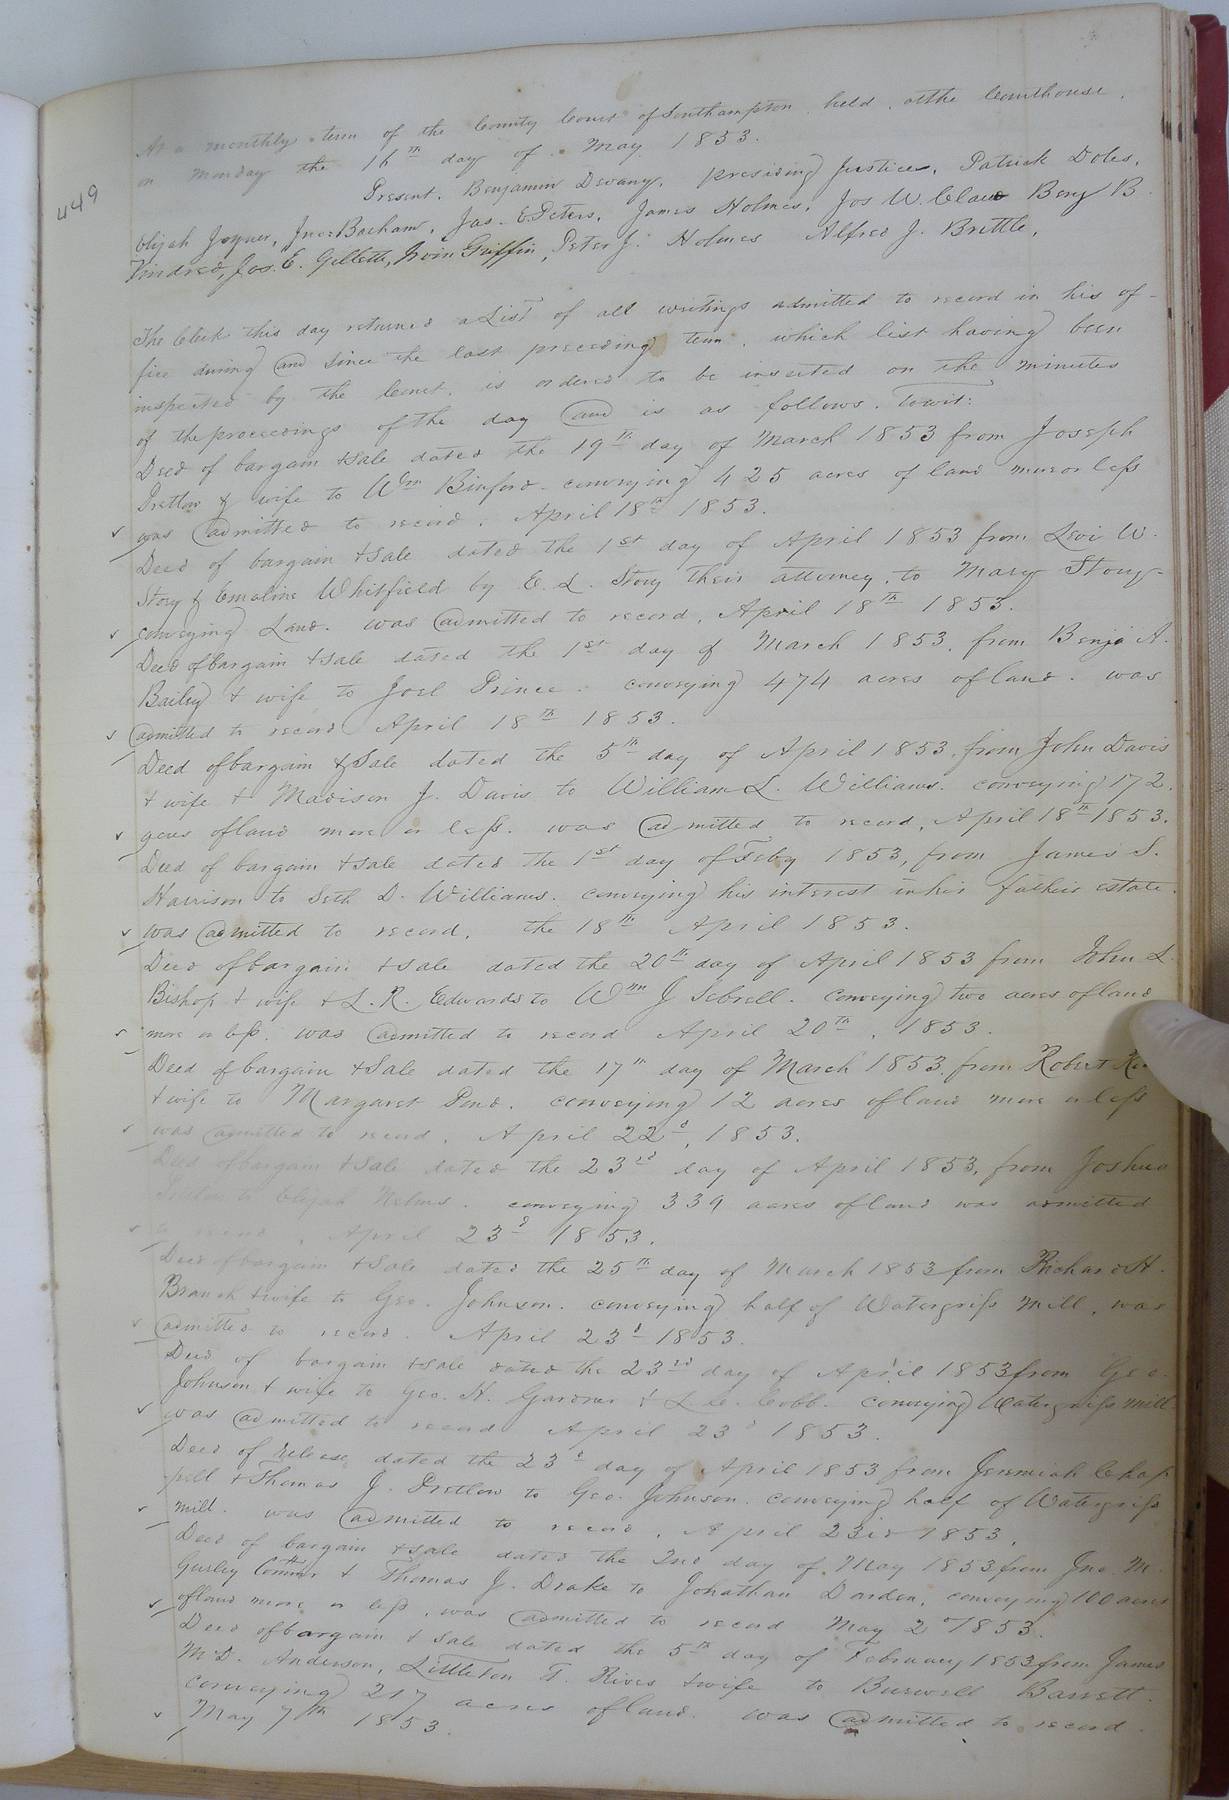 449
At a monthly term of the County Court of Southampton held at the Courthouse.
on Monday the 16th day of May 1853.
Present. Benjamin Devany, presiding Justice, Patrick Doles,
Elijah Joyner, Jno. Barham, Jas. E. Peters, James Holmes, Jos W. Claud Benj B.
Kindred, Jos. E. Gillette, Irvin Griffin, Peter J. Holmes Alfred J. Brittle,
The Clerk this day returned a List of all writings admitted to record in his of-
fice during and since the last preceeding term, which list having been
inspected by the Court, is ordered to be inserted on the minutes
of the proceedings of the day and is as follows. Towit:
Deed of bargain & sale dated the 19th day of March 1853 from Joseph
Pretlow & wife to Wm Binford - conveying 425 acres of land more or less
was admitted to record. April 18th 1853.
Deed of bargain & sale dated the 1st day of April 1853 from Levi W.
Story & Emaline Whitfield by E. L. Story their attorney, to Mary Story
conveying Land. was admitted to record, April 18th 1853.
Deed of bargain & sale dated the 1st day of March 1853, from Benja A.
Bailey & wife to Joel Prince. conveying 474 acres of land. was
admitted to record April 18th 1853.
Deed of bargain & Sale dated the 5th day of April 1853. from John Davis
& wife & Madison J. Davis to William L. Williams. conveying 172.
acres of land more or less. was admitted to record, April 18th 1853.
Deed of bargain & sale dated the 1st day of Feby 1853, from James S.
Harrison to Seth D. Williams. conveying his interest in his fathers estate.
was admitted to record. the 18th April 1853.
Deed of bargain & sale dated the 20th day of April 1853 from John L.
Bishop & wife & L. R. Edwards to Wm J Sebrell. conveying two acres of land
more or less. was admitted to record April 20th, 1853.
Deed of bargain & Sale dated the 17th day of March 1853. from Robert
& wife to Margaret Pond. conveying 12 acres of land more or less
was admitted to record. April 22d, 1853.
Deed of bargain & sale dated the 23rd day of April 1853. from Joshua
to Elijah Nelms. conveying 339 acres of land was admitted
to record, April 23d 1853.
Deed of bargain & Sale dated the 25th day of March 1853 from Richard H.
Branch & wife to Geo. Johnson. conveying half of Watergriss Mill. was
admitted to record. April 23d 1853.
Deed of bargain & sale dated the 23rd day of April 1853 from Geo.
Johnson & wife to Geo. H. Gardner & L. C. Cobb. Conveying Watergriss Mill
was admitted to record April 23d 1853.
Deed of Release, dated the 23d day of April 1853 from Jeremiah Chap
pell & Thomas J. Pretlow to Geo. Johnson. conveying half of Watergriss
mill. was admitted to record, April 23rd 1853.
Deed of bargain & sale dated the 2nd day of May 1853 from Jno. M.
Gurley Commr & Thomas J. Drake to Jonathan Darden, conveying 100 acres
of land more or less. was admitted to record May 2nd 1853.
Deed of bargain & Sale dated the 5th day of February 1853 from James
McD. Anderson, Littleton T. Rives & wife to Burwell Barrett.
Conveying 217 acres of land. was admitted to record.
May 7th 1853.